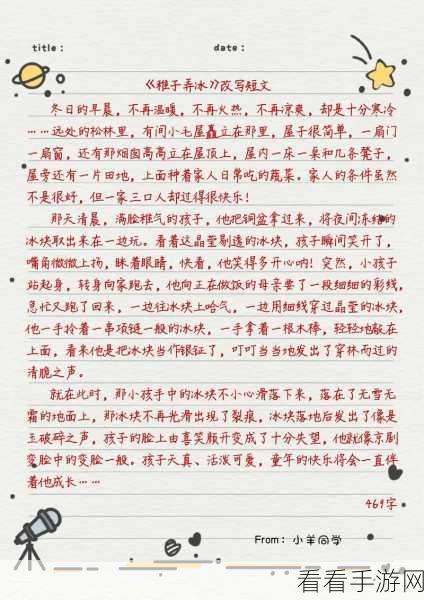 title：
date：
《稚子弄冰》改写短文
冬日的早晨，不再温暖，不再火热，不再凉爽，却是十分寒冷
……远处的松林里，有间小毛屋矗立在那里，屋子很简单，一扇门
一扇窗，还有那烟囱高高立在屋顶上，屋内一床一桌和几条凳子，
屋旁还有一片田地，上面种着家人日常吃的蔬菜。家人的条件虽然
不是很好，但一家三口人却过得很快乐！
那天清晨，满脸稚气的孩子，他把铜盆拿过来，将夜间冻结的
冰块取出来在一边玩。看着这晶莹剔透的冰块，孩子瞬间笑开了，
嘴角微微上扬，眯着眼睛，快看，他笑得多开心呐！突然，小孩子
站起身，转身向家跑去，他向正在做饭的母亲要了一段细细的彩线，
急忙又跑了回来，一边往冰块上哈气，一边用细线穿过晶莹的冰块，
他一手拎着一串项链一般的冰块，一手拿着一根木棒，轻轻地敲在
上面，看来他是把冰块当作银钲了，叮叮当当地发出了穿林而过的
清脆之声。
就在此时，那小孩手中的冰块不小心滑落下来，落在了无雪无
霜的地面上，那冰块不再光滑出现了裂痕，冰块落地后发出了像是
玉破碎之声，孩子的脸上由喜笑颜开变成了十分失望，他就像京剧
变脸中的变脸一般。孩子天真、活泼可爱，童年的快乐将会一直伴
着他成长……
469字
From：小羊同学
看看手游网